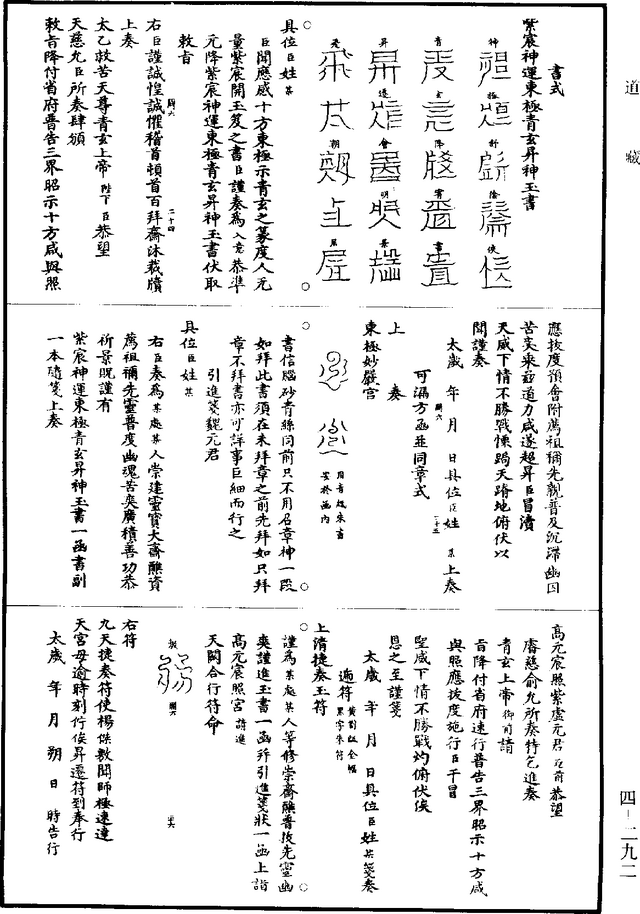 道藏
書式
紫宸神運東極青玄昇神玉書
神 極 新 陰 俟
青 玄 降 霄 書
昇 遷 會 明 景
飛 朝 上
具位臣姓某
臣聞應感十方東極示青玄之篆度人元
量紫宸開玉笈之書臣謹奏為入意恭準
元降紫宸神運東極青玄昇神玉書伏取
敕旨
右臣謹誠惶誠懼稽首頓首百拜齋沐裁牘
上奏
太乙救苦天尊青玄上帝陛下臣恭望
天慈允臣所奏肆頒
敕旨降付省府普告三界昭示十方咸與照
應拔度預會附薦祖禰先親普及沉滯幽囚
苦爽乘茲道力咸遂超昇臣冒瀆
天威下情不勝戰慄跼天蹐地俯伏以
聞謹奏
太歲年月日具位臣姓某上奏
可漏方函並同章式
上奏
東極妙嚴宮
書信腦砂青絲同前只不用召章神一段
如拜此書須在未拜章之前先拜如只拜
章不拜書亦可詳事巨細而行之
引進箋魏元君
具位臣姓某
右臣奏為某處某人崇建靈寶大齋醮資
薦祖禰先靈普度幽魂苦爽廣積善功恭
祈景貺謹有
紫宸神運東極青玄昇神玉書一函書副
一本隨箋上奏
高元宸照紫虛元君元前恭望
睿慈俞允所奏特乞進奏
青玄上帝御前請
旨降付省府速行普告三界昭示十方咸
與照應拔度施行臣干冒
聖威下情不勝戰灼俯伏俟
恩之至謹箋
太歲年月日具位臣姓某箋奏
遞符黃劄紙全幅黑字朱符
上清捷奏玉符
謹為某處某人等修崇齋醮普拔先靈幽
爽謹進玉書一函并引進箋狀一函上詣
高元宸照宮請進
天闕合行符命
右符
九天捷奏符使楊傑數聞師極速達
天宮毋逾時刻佇俟昇遷符到奉行
太歲年月朔日時告行
四-二九二